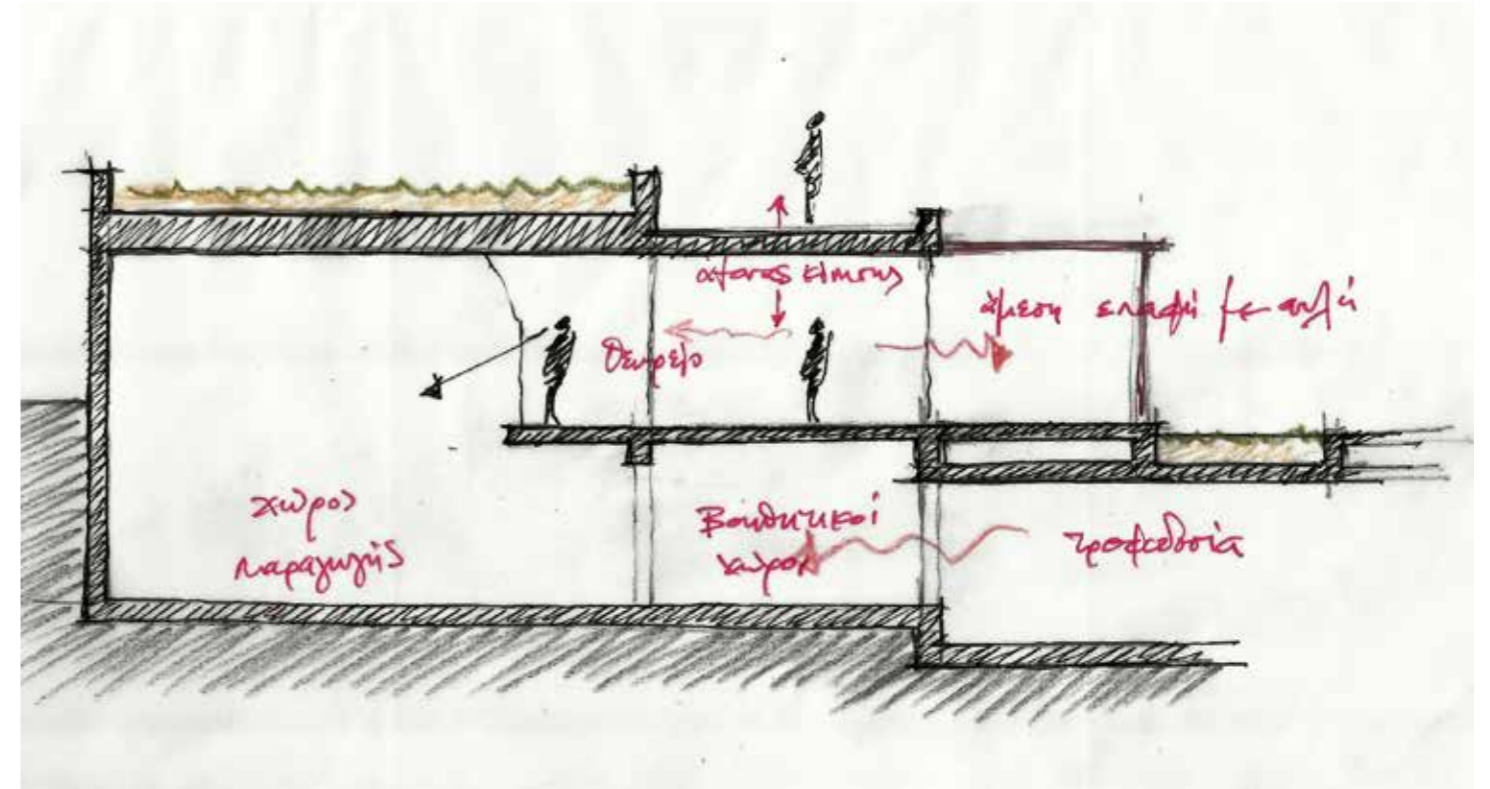 άξονας κίνησης
άμεση επαφή με αυλή
θεωρείο
χώρος
παραγωγής
βοηθητικοί
χώροι
τροφοδοσία